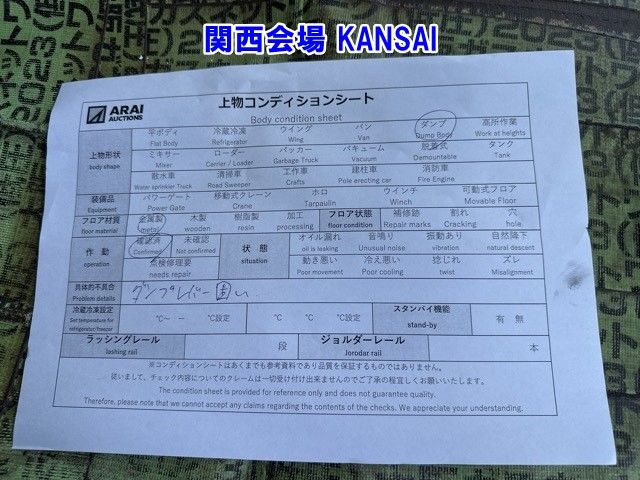 関西会場 KANSAI
ARAI
AUCTIONS
上物コンディションシート
Body condition sheet
上物形状
body shape
平ボディ 冷蔵冷凍 ウイング バン ダンプ 高所作業
Flat Body Refrigerator Wing Van Dump Body Work at heights
ミキサー ローダー パッカー バキューム 脱着式 タンク
Mixer Carrier / Loader Garbage Truck Vacuum Demountable Tank
散水車 清掃車 工作車 建柱車 消防車
Water sprinkler Truck Road Sweeper Crafts Pole erecting car Fire Engine
装備品 パワーゲート 移動式クレーン ホロ ウインチ 可動式フロア
Equipment Power Gate Crane Tarpaulin Winch Movable Floor
フロア材質 金属製 木製 樹脂製 加工 フロア状態 補修跡 割れ 穴
floor material metal wooden resin processing floor condition Repair marks Cracking hole
作動 確認済 未確認 状態 オイル漏れ 音鳴り 振動あり 自然降下
operation Confirmed Not confirmed situation oil is leaking Unusual noise vibration natural descent
点検修理要 動き悪い 冷え悪い 捻じれ ズレ
needs repair Poor movement Poor cooling twist Misalignment
具体的不具合
Problem details
ダンプレバー固い
冷蔵冷凍設定 ℃～ー ℃設定 ℃ ℃ ℃設定 スタンバイ機能 有 無
Set temperature for
refrigerator/freezer
stand-by
ラッシングレール 段 ジョルダーレール 本
lashing rail Jorodar rail
※コンディションシートはあくまでも参考資料であり品質を保証するものではありません。
従いまして、チェック内容についてのクレームは一切受け付け出来ませんのでご了承の程宜しくお願いいたします。
The condition sheet is provided for reference only and does not guarantee quality.
Therefore, please note that we cannot accept any claims regarding the contents of the checks. We appreciate your understanding.